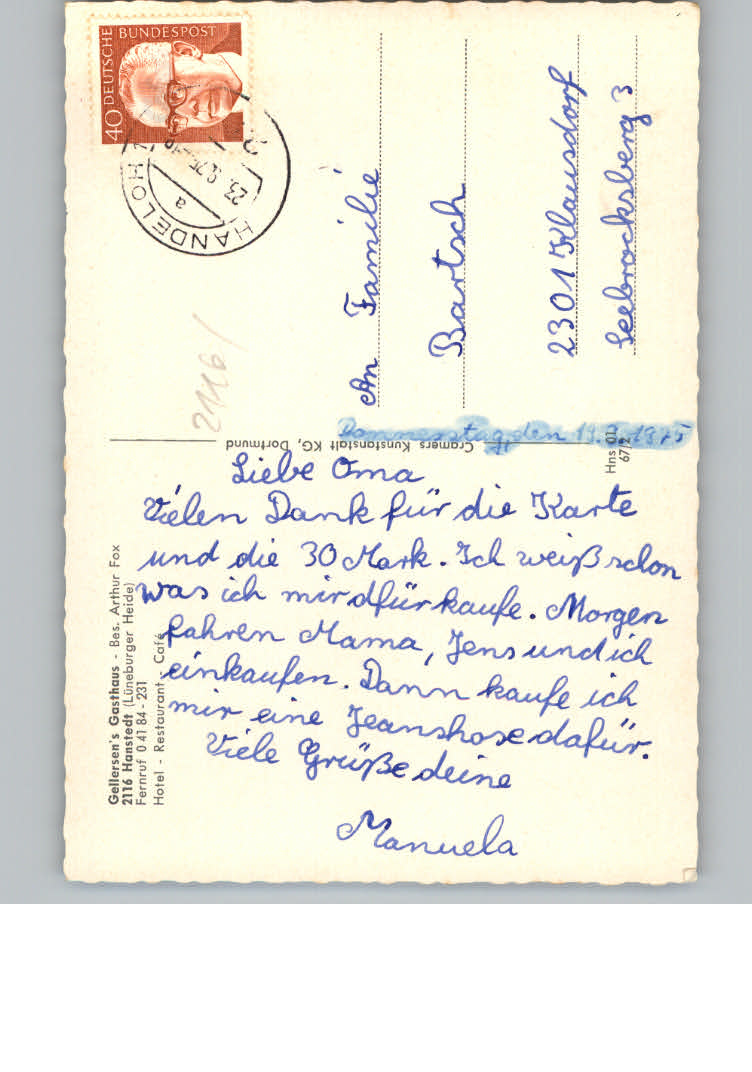 Gellersen's Gasthaus - Bes. Arthur Fox
2116 Hanstedt (Lüneburger Heide)
Fernruf 0 41 84 - 231
Hotel - Restaurant - Café
Donnerstag, den 19.9.1975
Liebe Oma
Vielen Dank für die Karte
und die 30 Mark. Ich weiß schon
was ich mir dfür kaufe. Morgen
fahren Mama, Jens und ich
einkaufen. Dann kaufe ich
mir eine Jeanshose dafür.
Viele Grüße deine
Manuela
Cramers Kunstanstalt KG, Dortmund
Hns 01
67/2
2116/
40 DEUTSCHE BUNDESPOST
HANDELOH 1
23.9.75
a
2
An Familie
Bartsch
2301 Klausdorf
Seebrocksberg 3